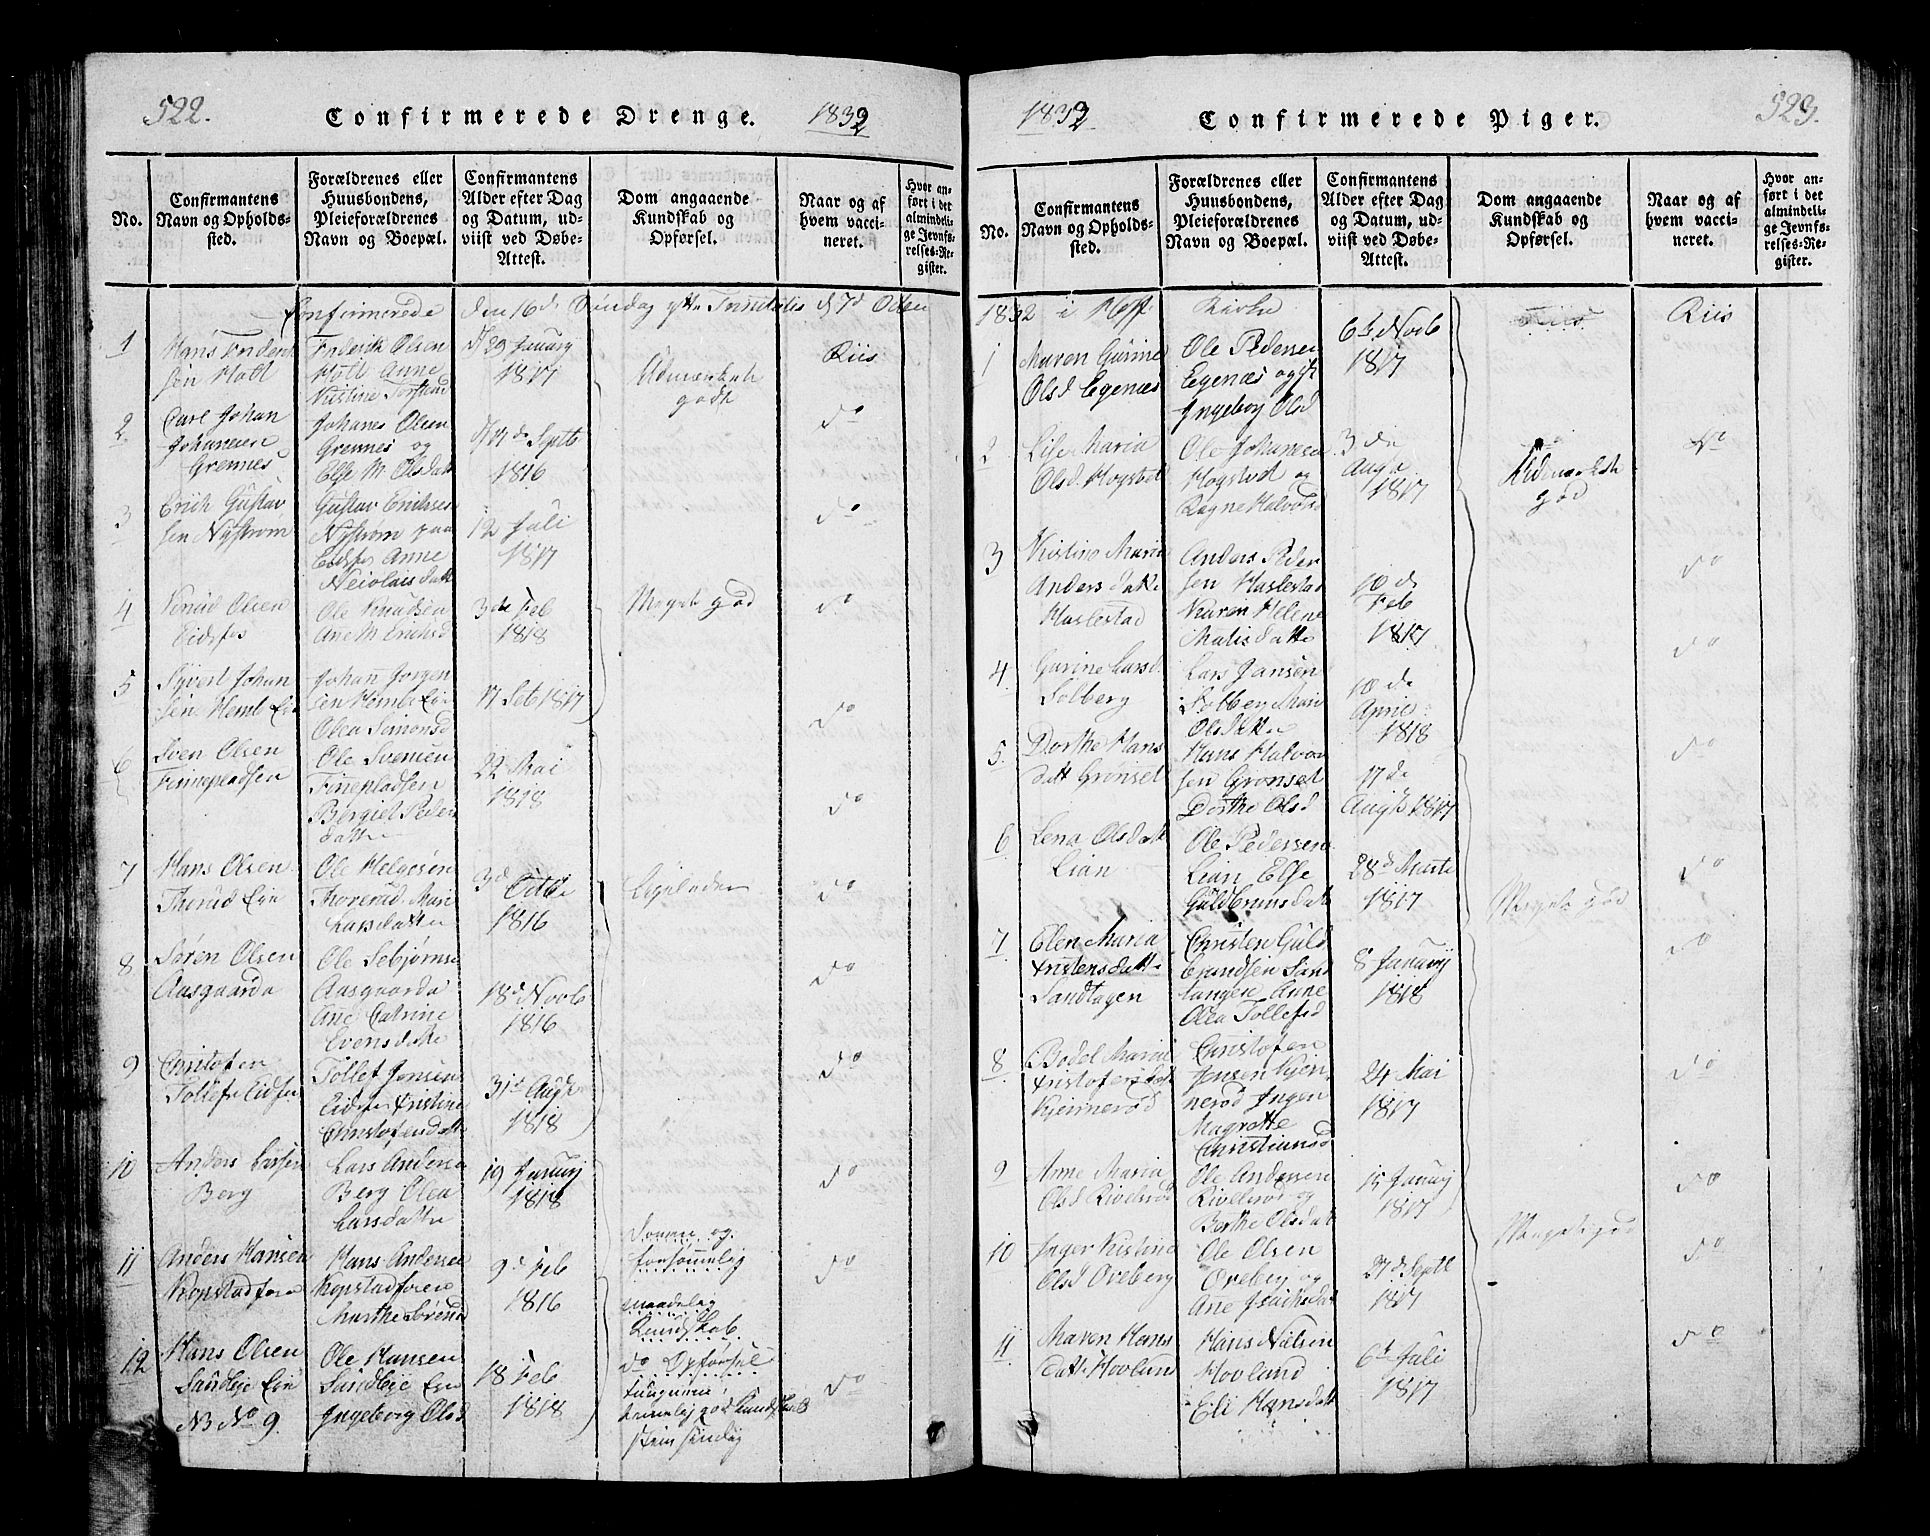 522.
Confirmerede Drenge.
1832
No.
Confirmantens
Navn og Opholds-
sted.
Forældrenes eller
Huusbondens,
Pleieforældrenes
Navn og Boepæl.
Confirmantens
Alder efter Dag
og Datum, ud-
viist ved Døbe-
Attest.
Dom angaaende
Kundskab og
Opførsel.
Naar og af
hvem vacci-
neret.
Hvor an-
ført i det
almindeli-
ge Jevnfø-
relses-Re-
gister.
Confirmerede den 16de Søndag efter Trinitatis d 7d Octbr
1
Hans Frederik
sen Holt
Frederik Olsen
Holt Anne
Kistine
29 Januarj
1817
Udmærkede
godt
Riis
2
Carl Johan
Johanesen
Grennes
Johanes Olsen
Grennes og
Else M. Olsdatt
Septb
1816
do
3
Erich Gustav
sen Nystrøm
Gustav Erichsen
Nystrøm paa
Eidsfos Anne
Nicolaisdatt
12 Juli
1817
do
4
Knud Olsen
Eidsfos
Ole Knudsen
Ane M Erichsd
3de Feb
1818
Meget god
do
5
Syvert Johan
sen Hemb Eie
Johan Jørgen
sen Hemb Eie
Olea Simonsd
17 Feb 1817
do
6
Sven Olsen
Finnepladsen
Ole Svensen
Finepladsen
Bergiet Peders
datter
22 Mai
1818
do
7
Hans Olsen
Thorud Eie
Ole Helgesen
Thorerud Mari
Larsdatter
3d Octbr
1816
Ligeledes
do
8
Søren Olsen
Aasgaarden
Ole Sebjørns
Aasgaarden
Ane Catrine
Evensdatter
18d Novb
1816
do
9
Christofen
Tollefs Eidsfos
Tollef Jensen
Eidsfos Cristine
Christofersdatter
31te Augs
1818
do
10
Anders Larsen
Berg
Lars Andersen
Berg Olea
Larsdatter
19 Januarj
1818
do
11
Anders Hansen
Kopstadforen
Hans Andersen
Kopstadforen
Marthe Sørensd
9d Feb
1816
Doven og
forsømmelig
maadelig
Kundskab.
do
12
Hans Olsen
Sandbeje Eie
NB No 9.
Ole Hansen
Sandbeje Eie
Ingeborg Olsd
18 Feb
1818
do Opførsel
temmelig god Kundskab
do
1832
Confirmerede Piger.
523.
No.
Confirmantens
Navn og Opholds-
sted.
Forældrenes eller
Huusbondens,
Pleieforældrenes
Navn og Boepæl.
Confirmantens
Alder efter Dag
og Datum, ud-
viist ved Døbe-
Attest.
Dom angaaende
Kundskab og
Opførsel.
Naar og af
hvem vacci-
neret.
Hvor an-
ført i det
almindeli-
ge Jevnfø-
relses-Re-
gister.
1832 i Hoff Kirke
1
Maren Gurine
Olsd Egenæs
Ole Pedersen
Egenæs og
Ingeborg Olsd
6te Novb
1817
Riis
2
Lise Maria
Olsd Hogstet
Ole Johansen
Hogstet og
Ragne Halvorsd
3 de
Augs
1817
Udmærkede
god
do
3
Kistine Marie
Andersdatter
Haslestad
Anders Peder
sen Haslestad
Karen Helene
Matisdatter
10 de
Feb
1817
do
4
Gurine Larsd.
Solberg
Lars Jansen
Solberg Mari
Olsdatter
10 de
April
1818
do
5.
Dorthe Hans
datt Grønset
Hans Halvor
sen Grønset
Dorthe Olsd
17 de
Augs 1817
do
6
Lena Olsdatt
Lian
Ole Pedersen
Lian Else
Guldbrunsdatt
28de Marts
1817
Meget god
do
7
Elen Maria
Kristensdatte
Sandtagen
Christen Guld
brandsen Sand
tangen Anne
Olea Tollefsd
8 Januarj
1818
do
8
Bodel Marie
Kristofersdatt
Kjeinnerød
Christofen
Jensen Kjein
nerød Ingen
Magrette
Christiansd
24 Mai
1817
do
9
Anne Maria
Olsd Rivelsrød
Ole Andersen
Rivelsrød og
Berthe Olsdatt
15 Januarj
1817
do
10
Inger Kistine
Olsd Oveberg
Ole Olsen
Oveberg og
Ane Isachsdatt
27d Septb
1817
Meget god
do
11
Maren Hans
datt. Hovland
Hans Nilsen
Hovland
Eli Hansdatt
6te Juli
1817
do